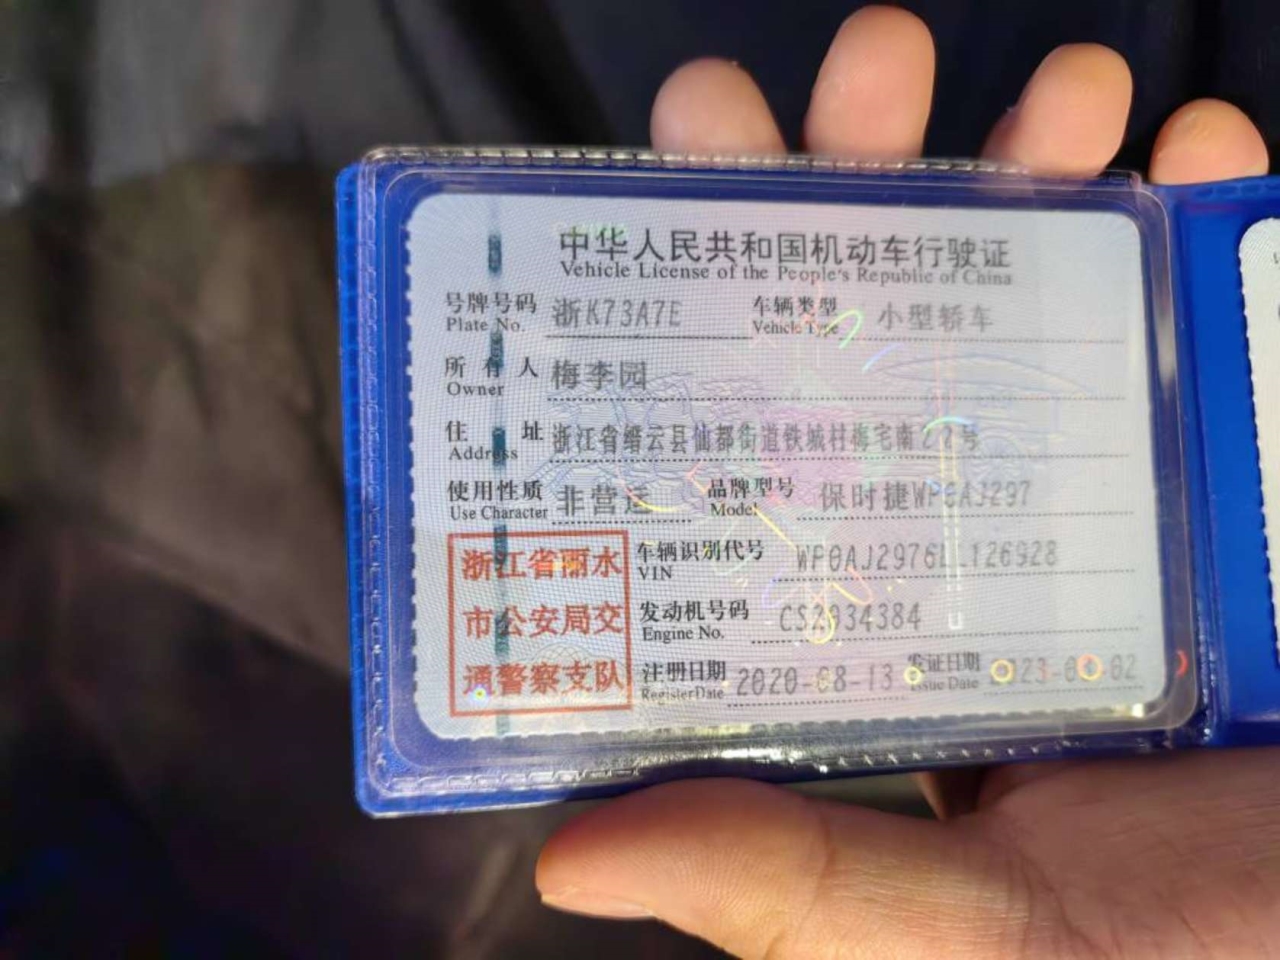 中华人民共和国机动车行驶证
Vehicle License of the People's Republic of China
号牌号码 浙K73A7E 车辆类型 小型轿车
Plate No. Vehicle Type
所有人 梅李园
Owner
住址 浙江省缙云县仙都街道铁城村梅宅南22号
Address
使用性质 非营运 品牌型号 保时捷WP0AJ297
Use Character Model
浙江省丽水 车辆识别代号
VIN
市公安局交 发动机号码 CS2034384
Engine No.
通警察支队 注册日期 2020-08-13 发证日期
Register Date Issue Date